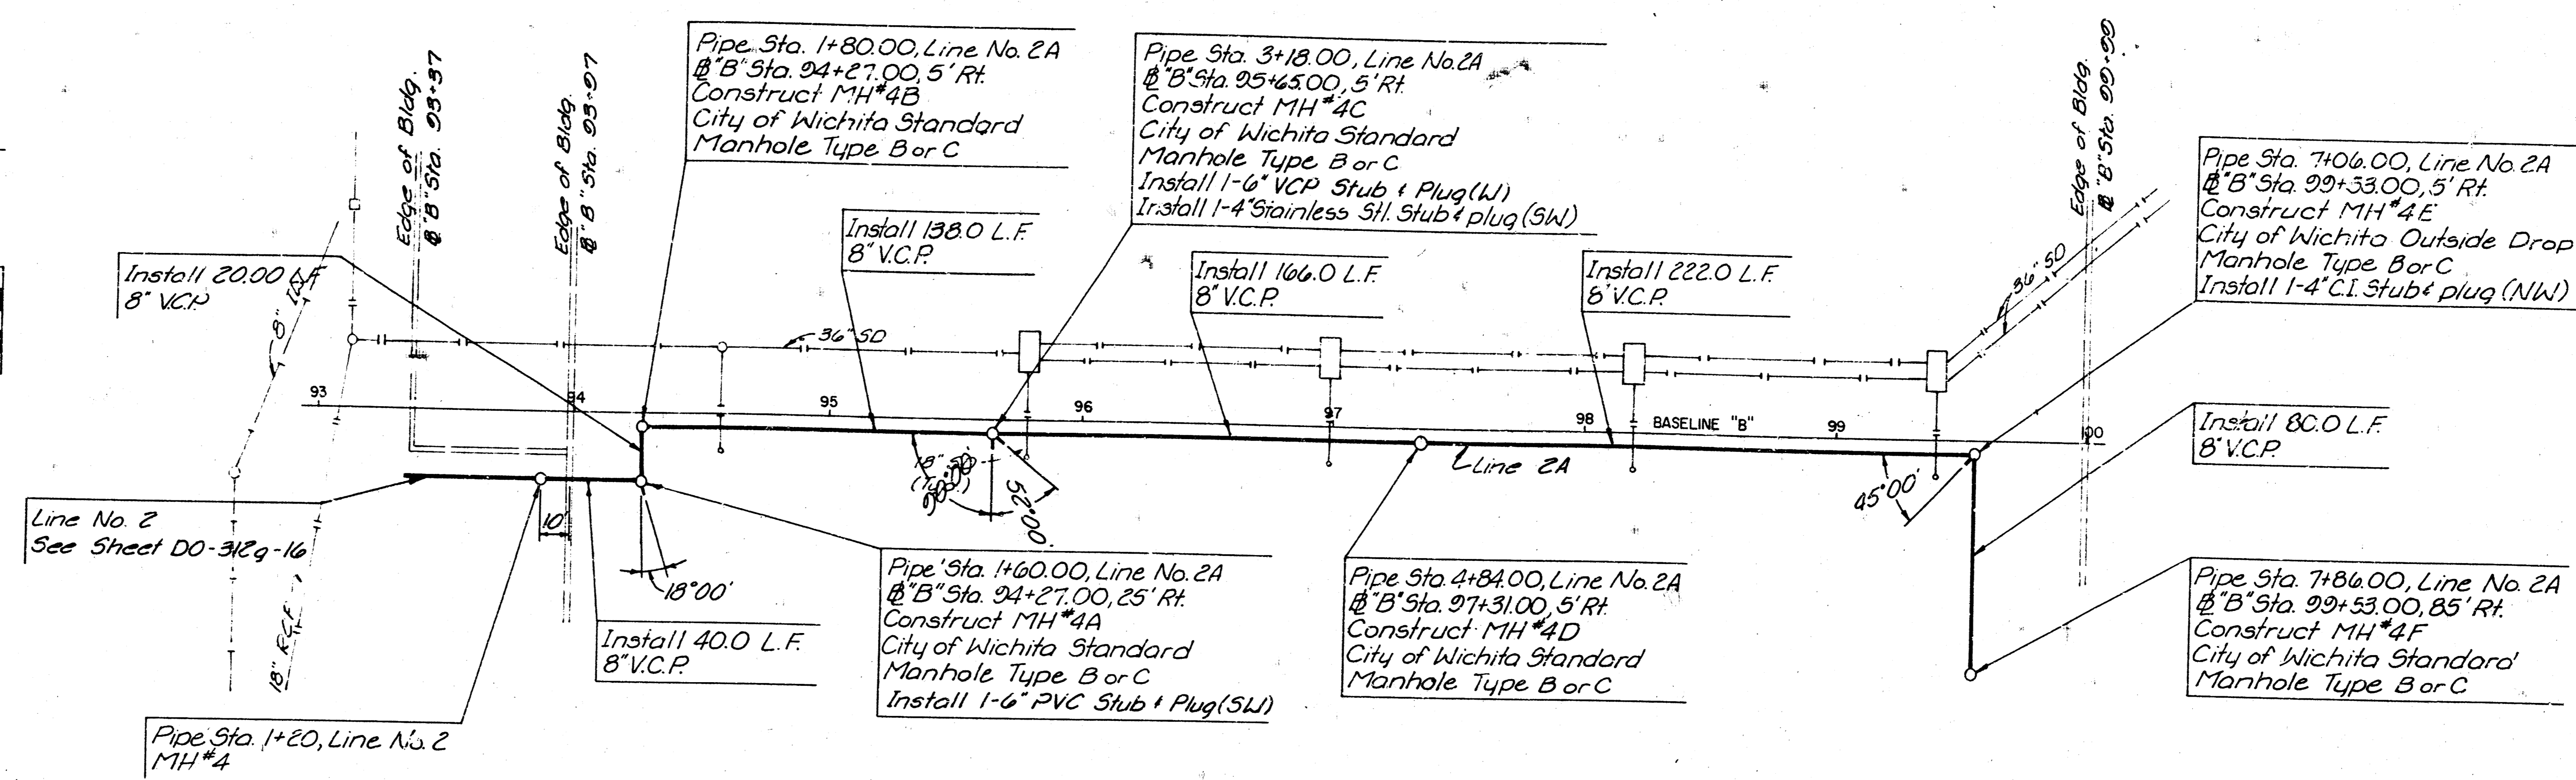 Edge of Bldg.
℄ "B" Sta. 93+37
Edge of Bldg.
℄ "B" Sta. 93+97
Pipe Sta. 1+80.00, Line No. 2A
℄ "B" Sta. 94+27.00, 5' Rt.
Construct MH #4B
City of Wichita Standard
Manhole Type B or C
Pipe Sta. 3+18.00, Line No. 2A
℄ "B" Sta. 95+65.00, 5' Rt.
Construct MH #4C
City of Wichita Standard
Manhole Type B or C
Install 1-6" VCP Stub & Plug (W)
Install 1-4" Stainless Stl. Stub & plug (SW)
Edge of Bldg.
℄ "B" Sta. 99+99
Pipe Sta. 7+06.00, Line No. 2A
℄ "B" Sta. 99+53.00, 5' Rt.
Construct MH #4E
City of Wichita Outside Drop
Manhole Type B or C
Install 1-4" C.I. Stub & plug (NW)
Install 20.00 L.F.
8" V.C.P.
8"
Install 138.0 L.F.
8" V.C.P.
Install 166.0 L.F.
8" V.C.P.
Install 222.0 L.F.
8" V.C.P.
36" SD
36" SD
93
94
95
96
97
98
BASELINE "B"
99
100
Install 80.0 L.F.
8" V.C.P.
Line 2A
18" SD
(Typ.)
90°00'
52°00'
45°00'
Line No. 2
See Sheet DO-312g-16
10'
18°00'
18" RCP
Install 40.0 L.F.
8" V.C.P.
Pipe Sta. 1+60.00, Line No. 2A
℄ "B" Sta. 94+27.00, 25' Rt.
Construct MH #4A
City of Wichita Standard
Manhole Type B or C
Install 1-6" PVC Stub & Plug (SW)
Pipe Sta. 4+84.00, Line No. 2A
℄ "B" Sta. 97+31.00, 5' Rt.
Construct MH #4D
City of Wichita Standard
Manhole Type B or C
Pipe Sta. 7+86.00, Line No. 2A
℄ "B" Sta. 99+53.00, 85' Rt.
Construct MH #4F
City of Wichita Standard
Manhole Type B or C
Pipe Sta. 1+20, Line No. 2
MH #4